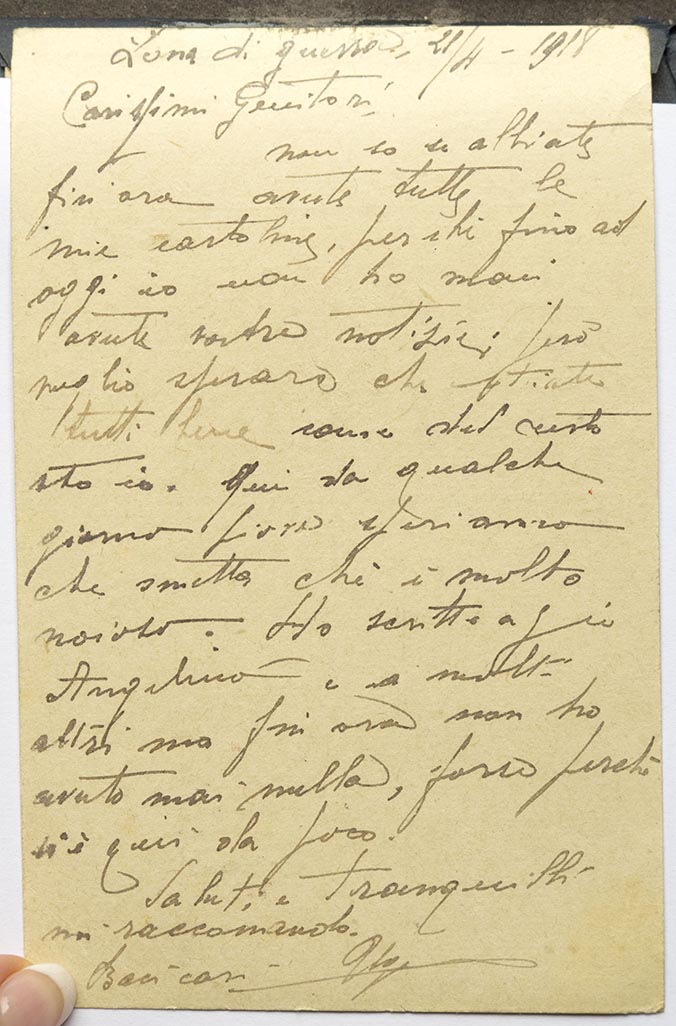 Zona di guerra, 21/4 - 1918
Carissimi Genitori,
non so se abbiate
fin ora avute tutte le
mie cartoline, perchè fino ad
oggi io non ho mai
avute vostre notizie; però
voglio sperare che stiate
tutti bene come del resto
sto io. Qui da qualche
giorno piove speriamo
che smetta chè è molto
noioso. Ho scritto a zio
Angelino e a molti
altri ma fin ora non ho
avuto mai nulla, forse perchè
si è qui da poco.
Saluti e tranquilli
mi raccomando.
Baci cari